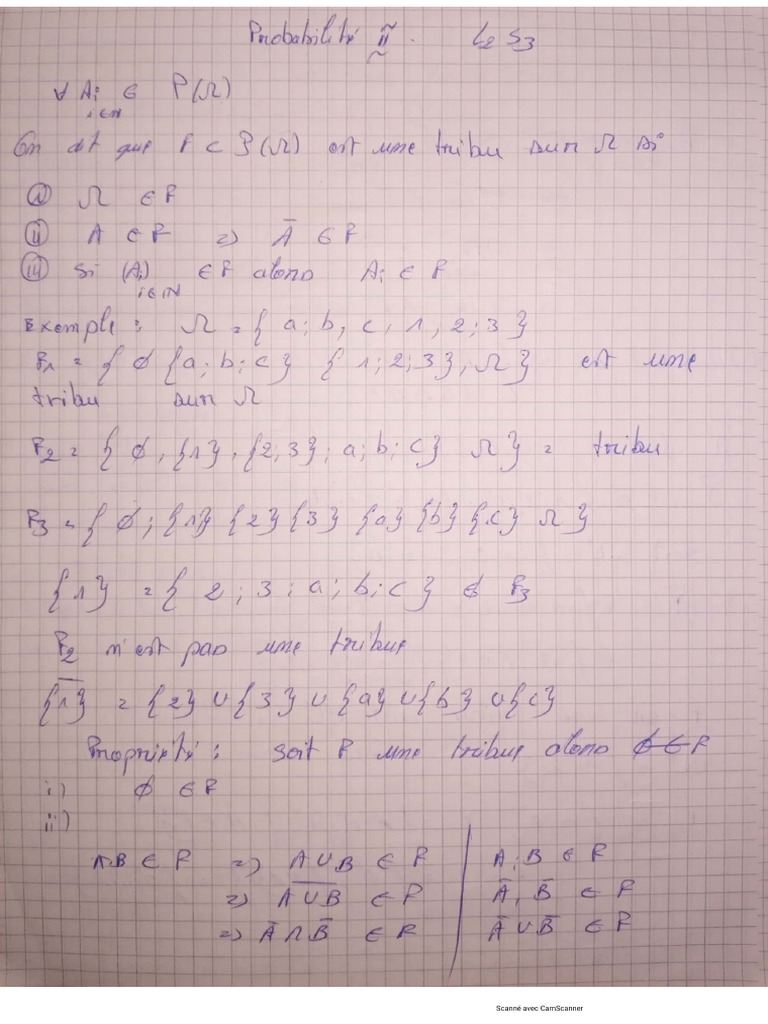 Probabilité II. L2 S3
∀ Ai ∈ P(Ω)
i∈N
On dit que F ⊂ P(Ω) est une tribu sur Ω si
(i) Ω ∈ F
(ii) A ∈ F => Ā ∈ F
(iii) Si (Ai) ∈ F alors Ai ∈ F
i∈N
Exemple : Ω = { a; b, c, 1, 2; 3 }
F1 = { ∅ {a; b; c} {1; 2; 3}, Ω } est une
tribu sur Ω
F2 = { ∅, {1}, {2; 3; a; b; c} Ω } = tribu
F3 = { ∅; {1} {2} {3} {a} {b} {c} Ω }
{1} = { 2; 3; a; b; c } ∉ F3
F2 n'est pas une tribue
{1}̅ = {2} ∪ {3} ∪ {a} ∪ {b} ∪ {c}
Propriété : soit F une tribue alors ∅ ∈ F
i) ∅ ∈ F
ii)
A B ∈ F => A ∪ B ∈ F | A; B ∈ F
=> A̅ ̅∪̅ ̅B̅ ∈ F | Ā, B̄ ∈ F
=> Ā ∩ B̄ ∈ F | Ā ∪ B̄ ∈ F
Scanné avec CamScanner